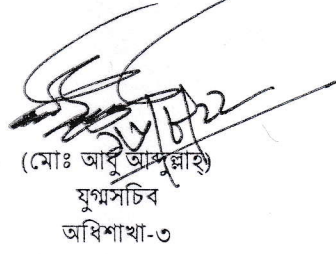 ২৬/৮/২২
(মোঃ আবু আব্দুল্লাহ্)
যুগ্মসচিব
অধিশাখা-৩